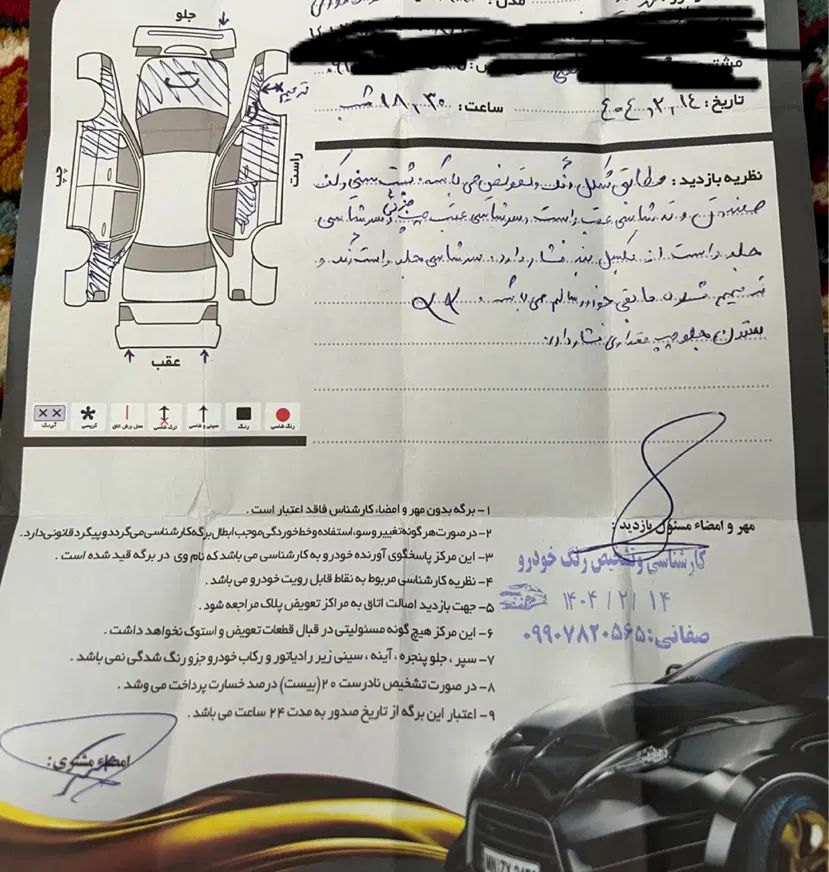 مدل :
مشتری
تاریخ : ۴۰۴,۲,۱۴ ساعت : ۱۸,۳۰ شب
جلو
ت
ترمیم
چپ
راست
عقب
نظریه بازدید : مطابق شکل رنگ و تعویض می باشد. ثبت سینی و کف
صندوق و ته شاسی عقب راست و سرشاسی عقب چپ جزئی و سرشاسی
جلو راست از بکسل بند فشار دارد. سرشاسی جلو راست رنگ و
ترمیم شده مابقی خودرو سالم می باشد.
ستون جلو چپ مقداری فشار دارد.
رنگ شاسی
رنگ
سینی و شاسی
ترک شاسی
محل برش اتاق
گریسی
آبرنگ
مهر و امضاء مسئول بازدید :
کارشناسی و تشخیص رنگ خودرو
۱۴۰۴ / ۲ / ۱۴
صفائی: ۰۹۹۰۷۸۲۰۵۶۵
۱- برگه بدون مهر و امضاء کارشناس فاقد اعتبار است .
۲- در صورت هر گونه تغییر و سوء استفاده و خط خوردگی موجب ابطال برگه کارشناسی می گردد و پیگرد قانونی دارد.
۳- این مرکز پاسخگوی آورنده خودرو به کارشناسی می باشد که نام وی در برگه قید شده است .
۴- نظریه کارشناسی مربوط به نقاط قابل رویت خودرو می باشد .
۵- جهت بازدید اصالت اتاق به مراکز تعویض پلاک مراجعه شود .
۶- این مرکز هیچ گونه مسئولیتی در قبال قطعات تعویض و استوک نخواهد داشت .
۷- سپر ، جلو پنجره ، آینه ، سینی زیر رادیاتور و رکاب خودرو جزو رنگ شدگی نمی باشد .
۸- در صورت تشخیص نادرست ۲۰ (بیست) درصد خسارت پرداخت می شود .
۹- اعتبار این برگه از تاریخ صدور به مدت ۲۴ ساعت می باشد .
امضاء مشتری :